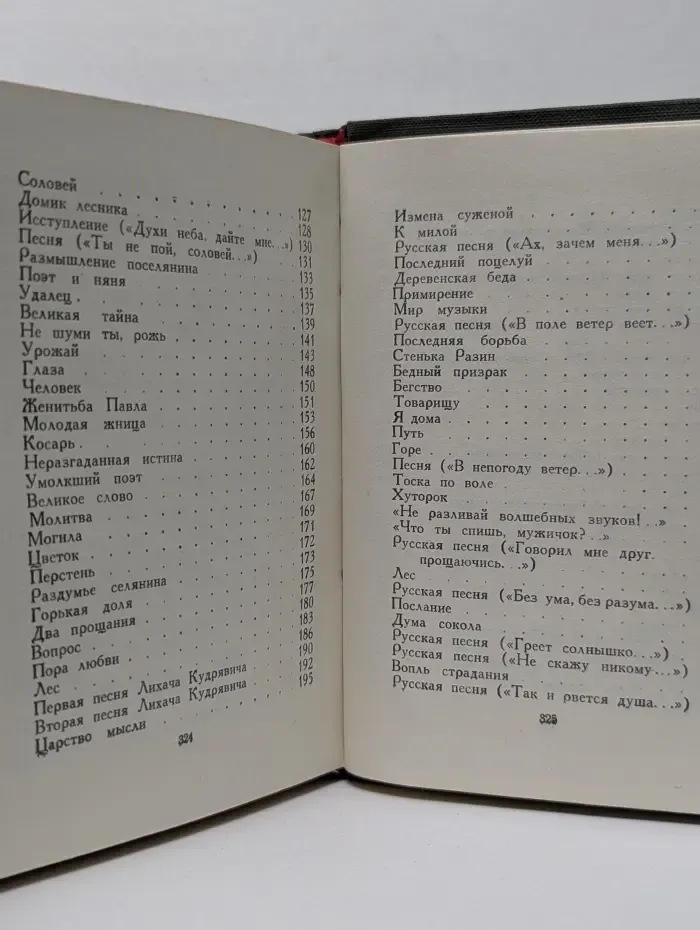 Соловей . . . . . . . . . . 127
Домик лесника . . . . . . . . 128
Исступление («Духи неба, дайте мне. . .») 130
Песня («Ты не пой, соловей. . .») . . 131
Размышление поселянина . . . . . 133
Поэт и няня . . . . . . . . 135
Удалец . . . . . . . . . . 137
Великая тайна . . . . . . . . 139
Не шуми ты, рожь . . . . . . . 141
Урожай . . . . . . . . . . 143
Глаза . . . . . . . . . . 148
Человек . . . . . . . . . . 150
Женитьба Павла . . . . . . . . 151
Молодая жница . . . . . . . . 153
Косарь . . . . . . . . . . 156
Неразгаданная истина . . . . . . 160
Умолкший поэт . . . . . . . . 162
Великое слово . . . . . . . . 164
Молитва . . . . . . . . . . 167
Могила . . . . . . . . . . 169
Цветок . . . . . . . . . . 171
Перстень . . . . . . . . . . 172
Раздумье селянина . . . . . . . 173
Горькая доля . . . . . . . . 175
Два прощания . . . . . . . . 177
Вопрос . . . . . . . . . . 180
Пора любви . . . . . . . . . 183
Лес . . . . . . . . . . . 186
Первая песня Лихача Кудрявича . . . 190
Вторая песня Лихача Кудрявича . . . 192
Царство мысли . . . . . . . . 195
324
Измена суженой . . . . . . .
К милой . . . . . . . . .
Русская песня («Ах, зачем меня. . .») .
Последний поцелуй . . . . . .
Деревенская беда . . . . . . .
Примирение . . . . . . . .
Мир музыки . . . . . . . .
Русская песня («В поле ветер веет. . .»)
Последняя борьба . . . . . . .
Стенька Разин . . . . . . . .
Бедный призрак . . . . . . .
Бегство . . . . . . . . .
Товарищу . . . . . . . . .
Я дома . . . . . . . . .
Путь . . . . . . . . . .
Горе . . . . . . . . . .
Песня («В непогоду ветер. . .») . . .
Тоска по воле . . . . . . . .
Хуторок . . . . . . . . .
«Не разливай волшебных звуков! . .» .
«Что ты спишь, мужичок? . .» . . .
Русская песня («Говорил мне друг,
прощаючись. . .») . . . . . .
Лес . . . . . . . . . .
Русская песня («Без ума, без разума. . .»)
Послание . . . . . . . . .
Дума сокола . . . . . . . .
Русская песня («Греет солнышко. . .») .
Русская песня («Не скажу никому. . .») .
Вопль страдания . . . . . . .
Русская песня («Так и рвется душа. . .»)
325